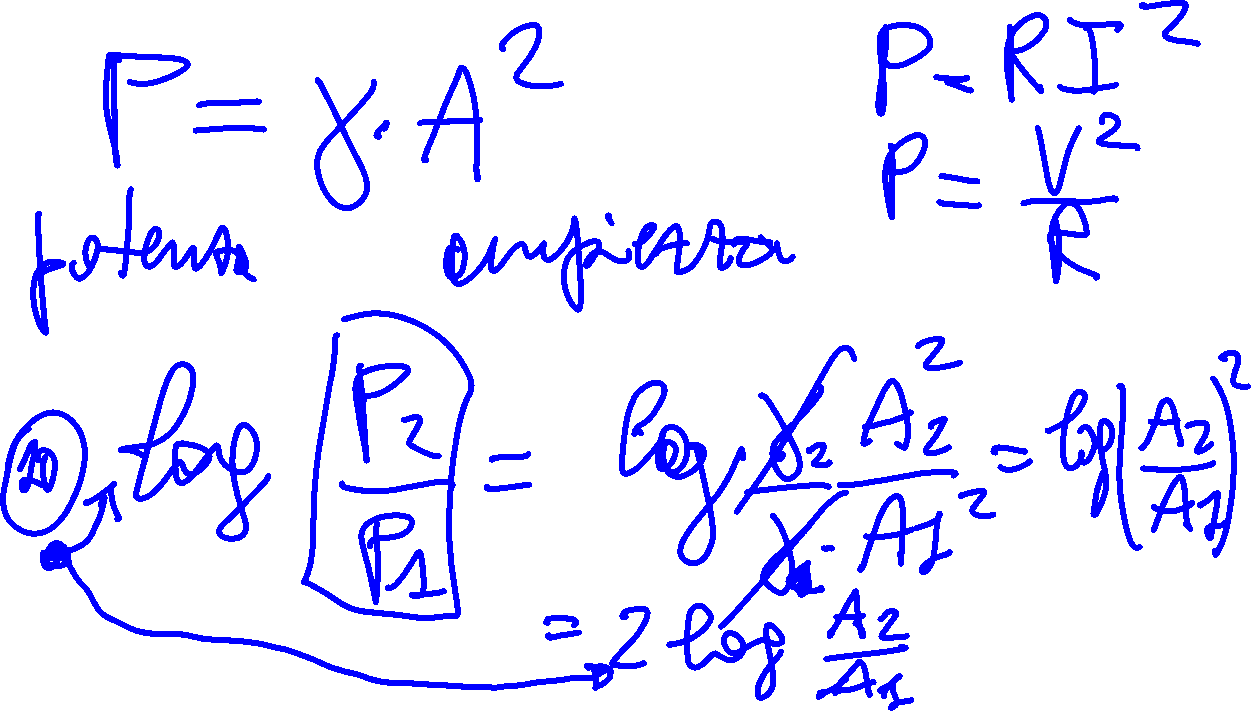 P = γ · A²
potenza ampiezza
P = RI²
P = V²/R
10 log P₂/P₁ = log γ₂ A₂² / γ₁ · A₁² = log (A₂/A₁)²
= 2 log A₂/A₁